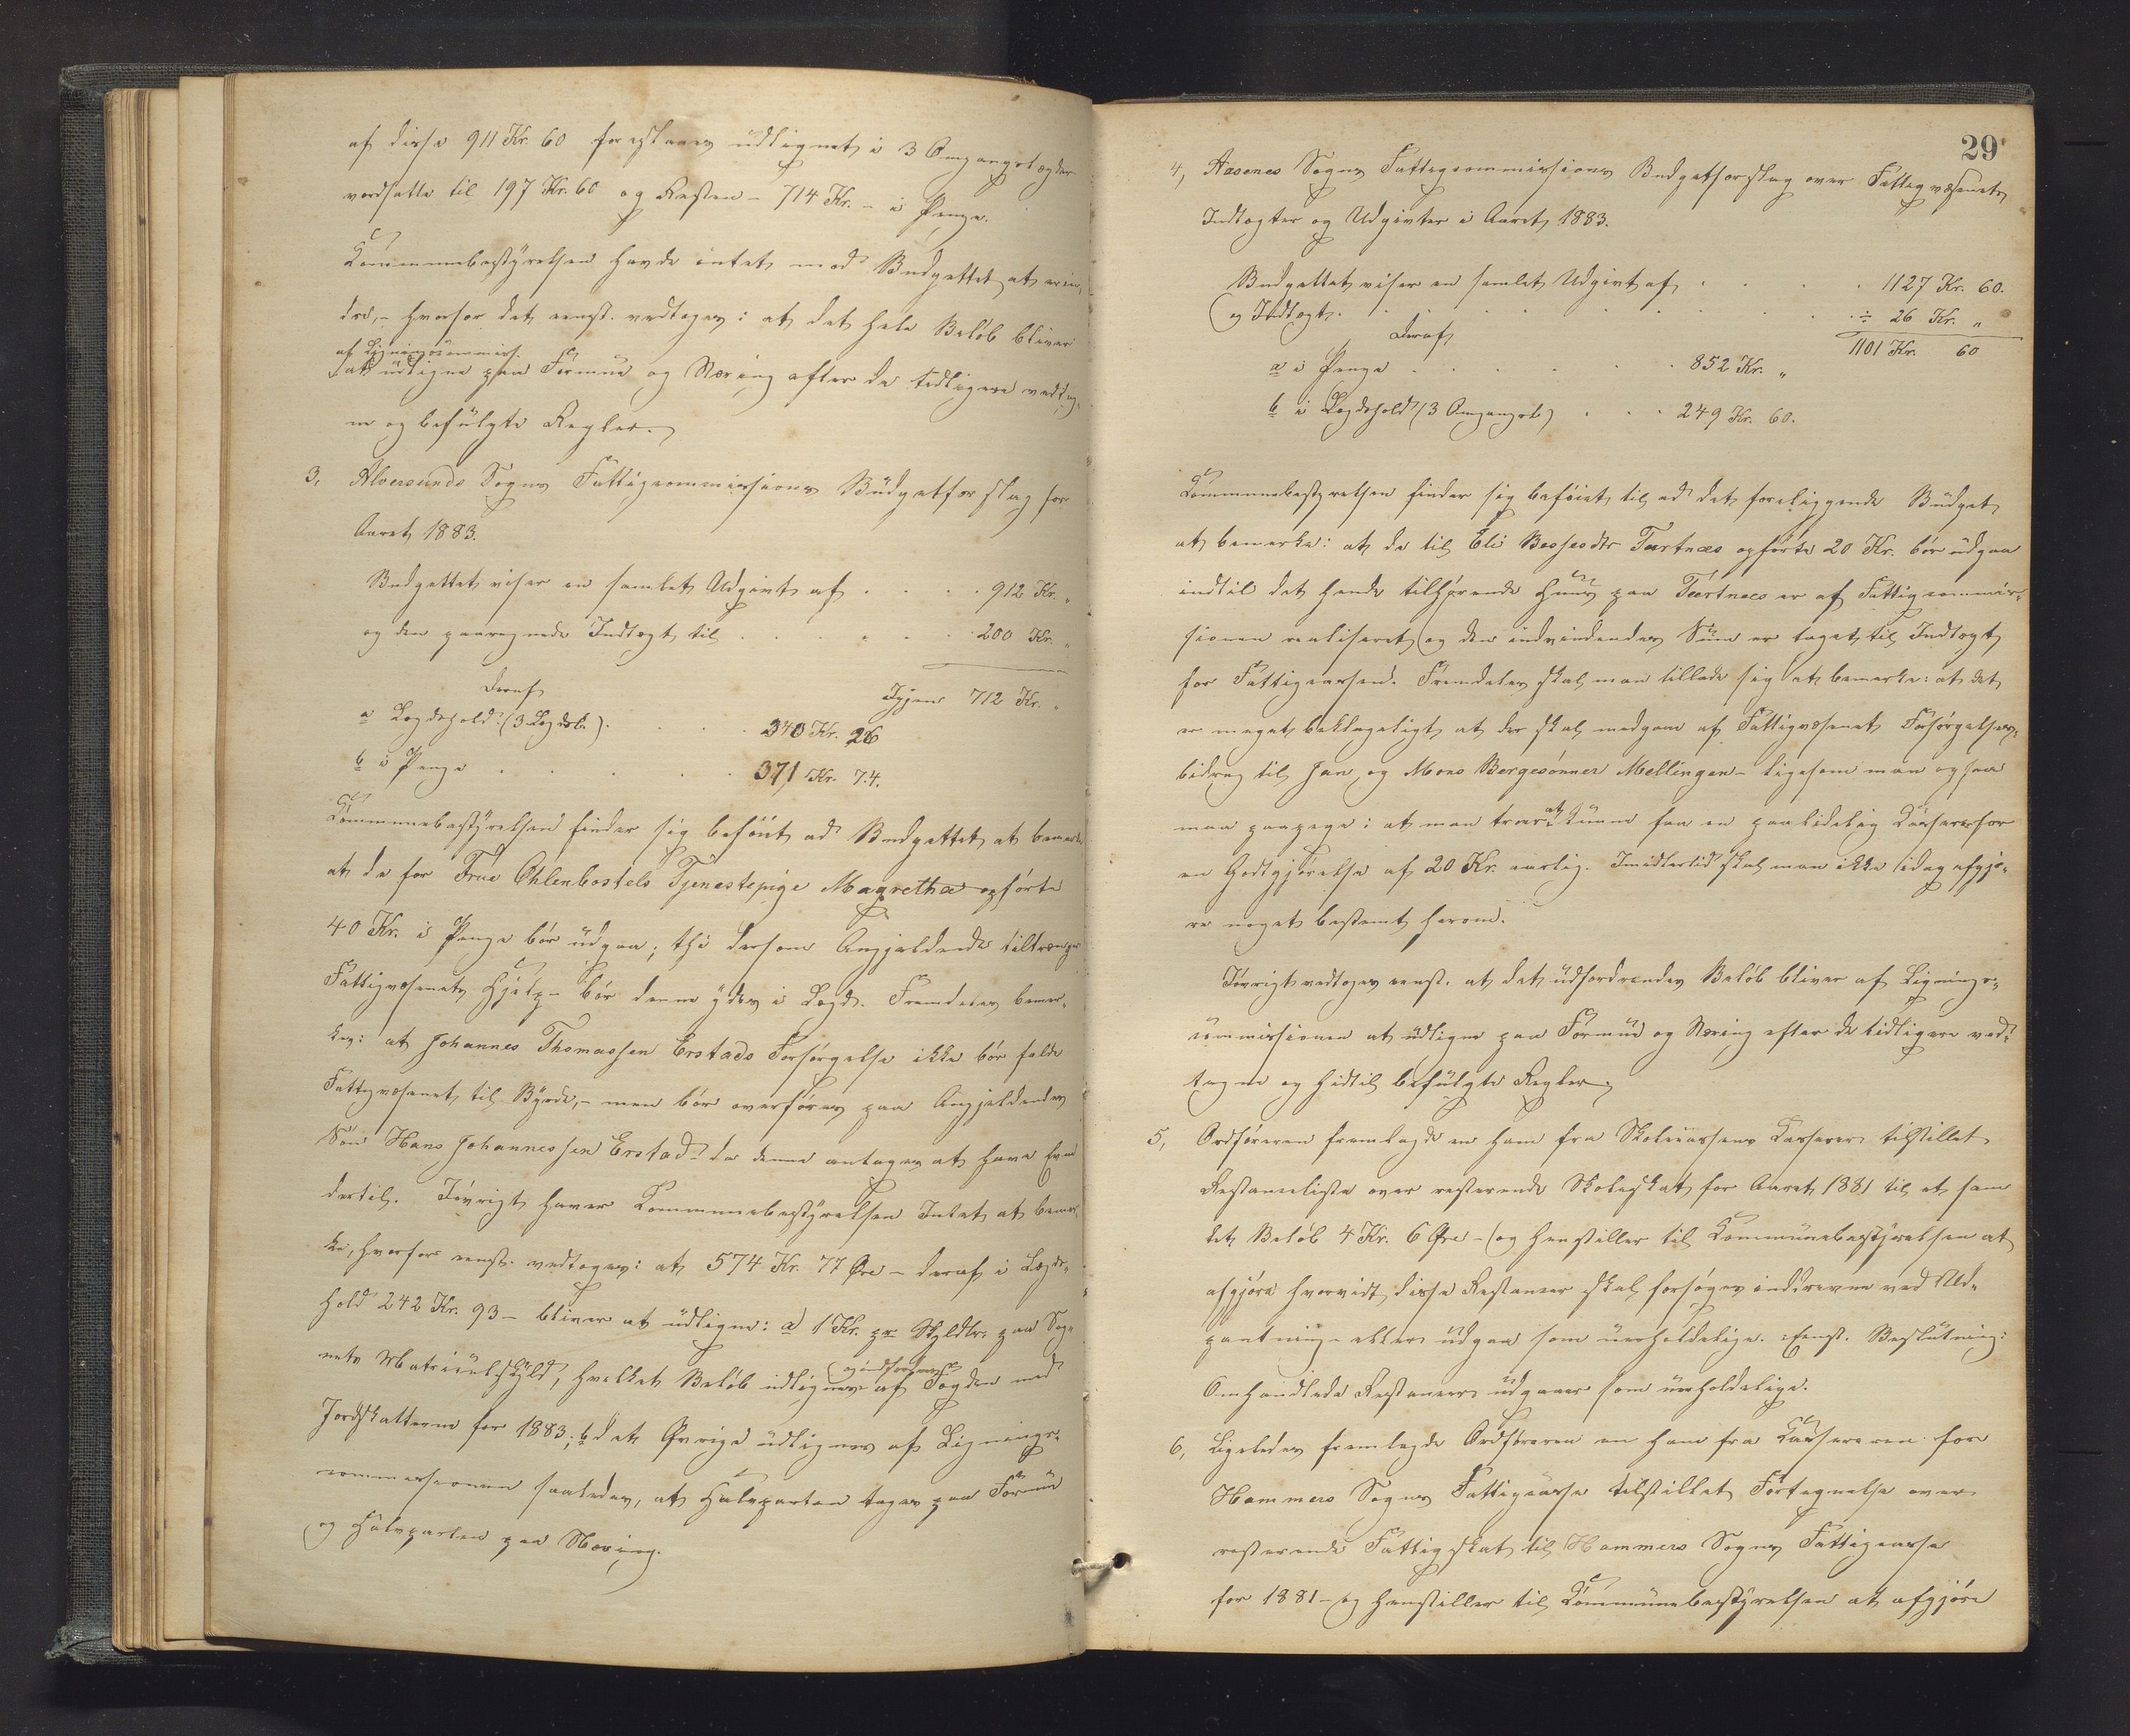 af disse 911 Kr. 60 foreslaaes udlignet i 3 Omgangslægder
værdsatte til 197 Kr. 60 og Resten - 714 Kr. - i Penge.
Kommunebestyrelsen havde intet mod Budgettet at erin-
dre, - hvorfor det eenst. vedtoges: at det hele Beløb bliver
af Ligningscommiss.
at udligne paa Formue og Næring efter de tidligere vedtag-
ne og befulgte Regler.
3, Alversunds Sogns Fattigcommissions Budgetforslag for
Aaret 1883.
Budgettet viser en samlet Udgivt af . . . . 912 Kr. "
og den paaregnede Indtægt til . . . . . . 200 Kr. "
Igjen 712 Kr. "
Deraf
a Lægdshold (3 Lægdsl.) . . . 340 Kr. 26
b i Penge . . . . . . 371 Kr. 74.
Kommunebestyrelsen finder sig beføiet ad Budgettet at bemærke
at de for Frue Ohlenbostels Tjenestepige Magretha opførte
40 Kr. i Penge bør udgaa; thi dersom Angjældende tiltrænger
Fattigvæsenets Hjælp - bør denne ydes i Lægd. Fremdeles bemær-
kes: at Johannes Thomassen Erstads Forsørgelse ikke bør falde
Fattigvæsenet til Byrde, - men bør overføres paa Angjældendes
Søn Hans Johannessen Erstad - da denne antages at have Evne
dertil. Iøvrigt haver Kommunebestyrelsen Intet at bemær-
ke, hvorfor eenst. vedtoges: at 574 Kr. 77 Øre - deraf i Lægds-
hold 242 Kr. 93 - bliver at udligne: a) 1 Kr. pr Skyldlr. paa Sog-
nets Matriculskyld, hvilket Beløb udlignes af Fogden med
og indfordres
Jordskatterne for 1883; b det Øvrige udlignes af Lignings-
commissionen saaledes, at Halvparten tages paa Formue
og Halvparten paa Næring.
29
4, Aasenes Sogns Fattigcommissions Budgetforslag over Fattigvæsenets
Indtægter og Udgivter i Aaret 1883.
Budgettet viser en samlet Udgivt af . . . . 1127 Kr. 60.
og Indtægt. . . . . . . . . . . ÷ 26 Kr. "
1101 Kr. 60
Deraf
a i Penge . . . . . . 852 Kr. "
b i Lægdshold (3 Omgangsl.) . . . 249 Kr. 60.
Kommunebestyrelsen finder sig beføiet til ad det foreliggende Budget
at bemærke: at de til Eli Bessesdtr Tærtnæs opførte 20 Kr. bør udgaa
indtil det hende tilhørende Huus paa Tærtnæs er af Fattigcommis-
sionen realiseret og den indvindendes Sum er taget til Indtægt
for Fattigcassen. Fremdeles skal man tillade sig at bemærke: at det
er meget beklageligt at der skal medgaae af Fattigvæsenet Forsørgelses-
bidrag til Jan og Mons Bergesønner Mellingen - ligesom man ogsaa
maa paapege: at man troer at kunne faa en paalidelig Kasserer for
en Godtgjørelse af 20 Kr. aarlig. Imidlertid skal man ikke idag afgjø-
re noget bestemt herom.
Iøvrigt vedtoges eenst. at det udfordrendes Beløb bliver af Lignings-
commissionen at udligne paa Formue og Næring efter de tidligere ved-
tagne og hidtil befulgte Regler.
5, Ordføreren fremlagde en ham fra Skolecassens Kasserer tilstillet
Restanceliste over resterende Skoleskat for Aaret 1881 til et sam-
let Beløb 4 Kr. 6 Øre - og henstiller til Kommunebestyrelsen at
afgjøre hvorvidt disse Restancer skal forsøges inddrevne ved Ud-
pantning - eller udgaa som uerholdelige. Eenst. Beslutning:
Omhandlede Restancer udgaaer som uerholdelige.
6, Ligeledes fremlagde Ordføreren en ham fra Kassereren for
Hammers Sogns Fattigcasse tilstillet Fortegnelse over
resterende Fattigskat til Hammers Sogns Fattigcasse
for 1881 - og henstiller til Kommunebestyrelsen at afgjøre